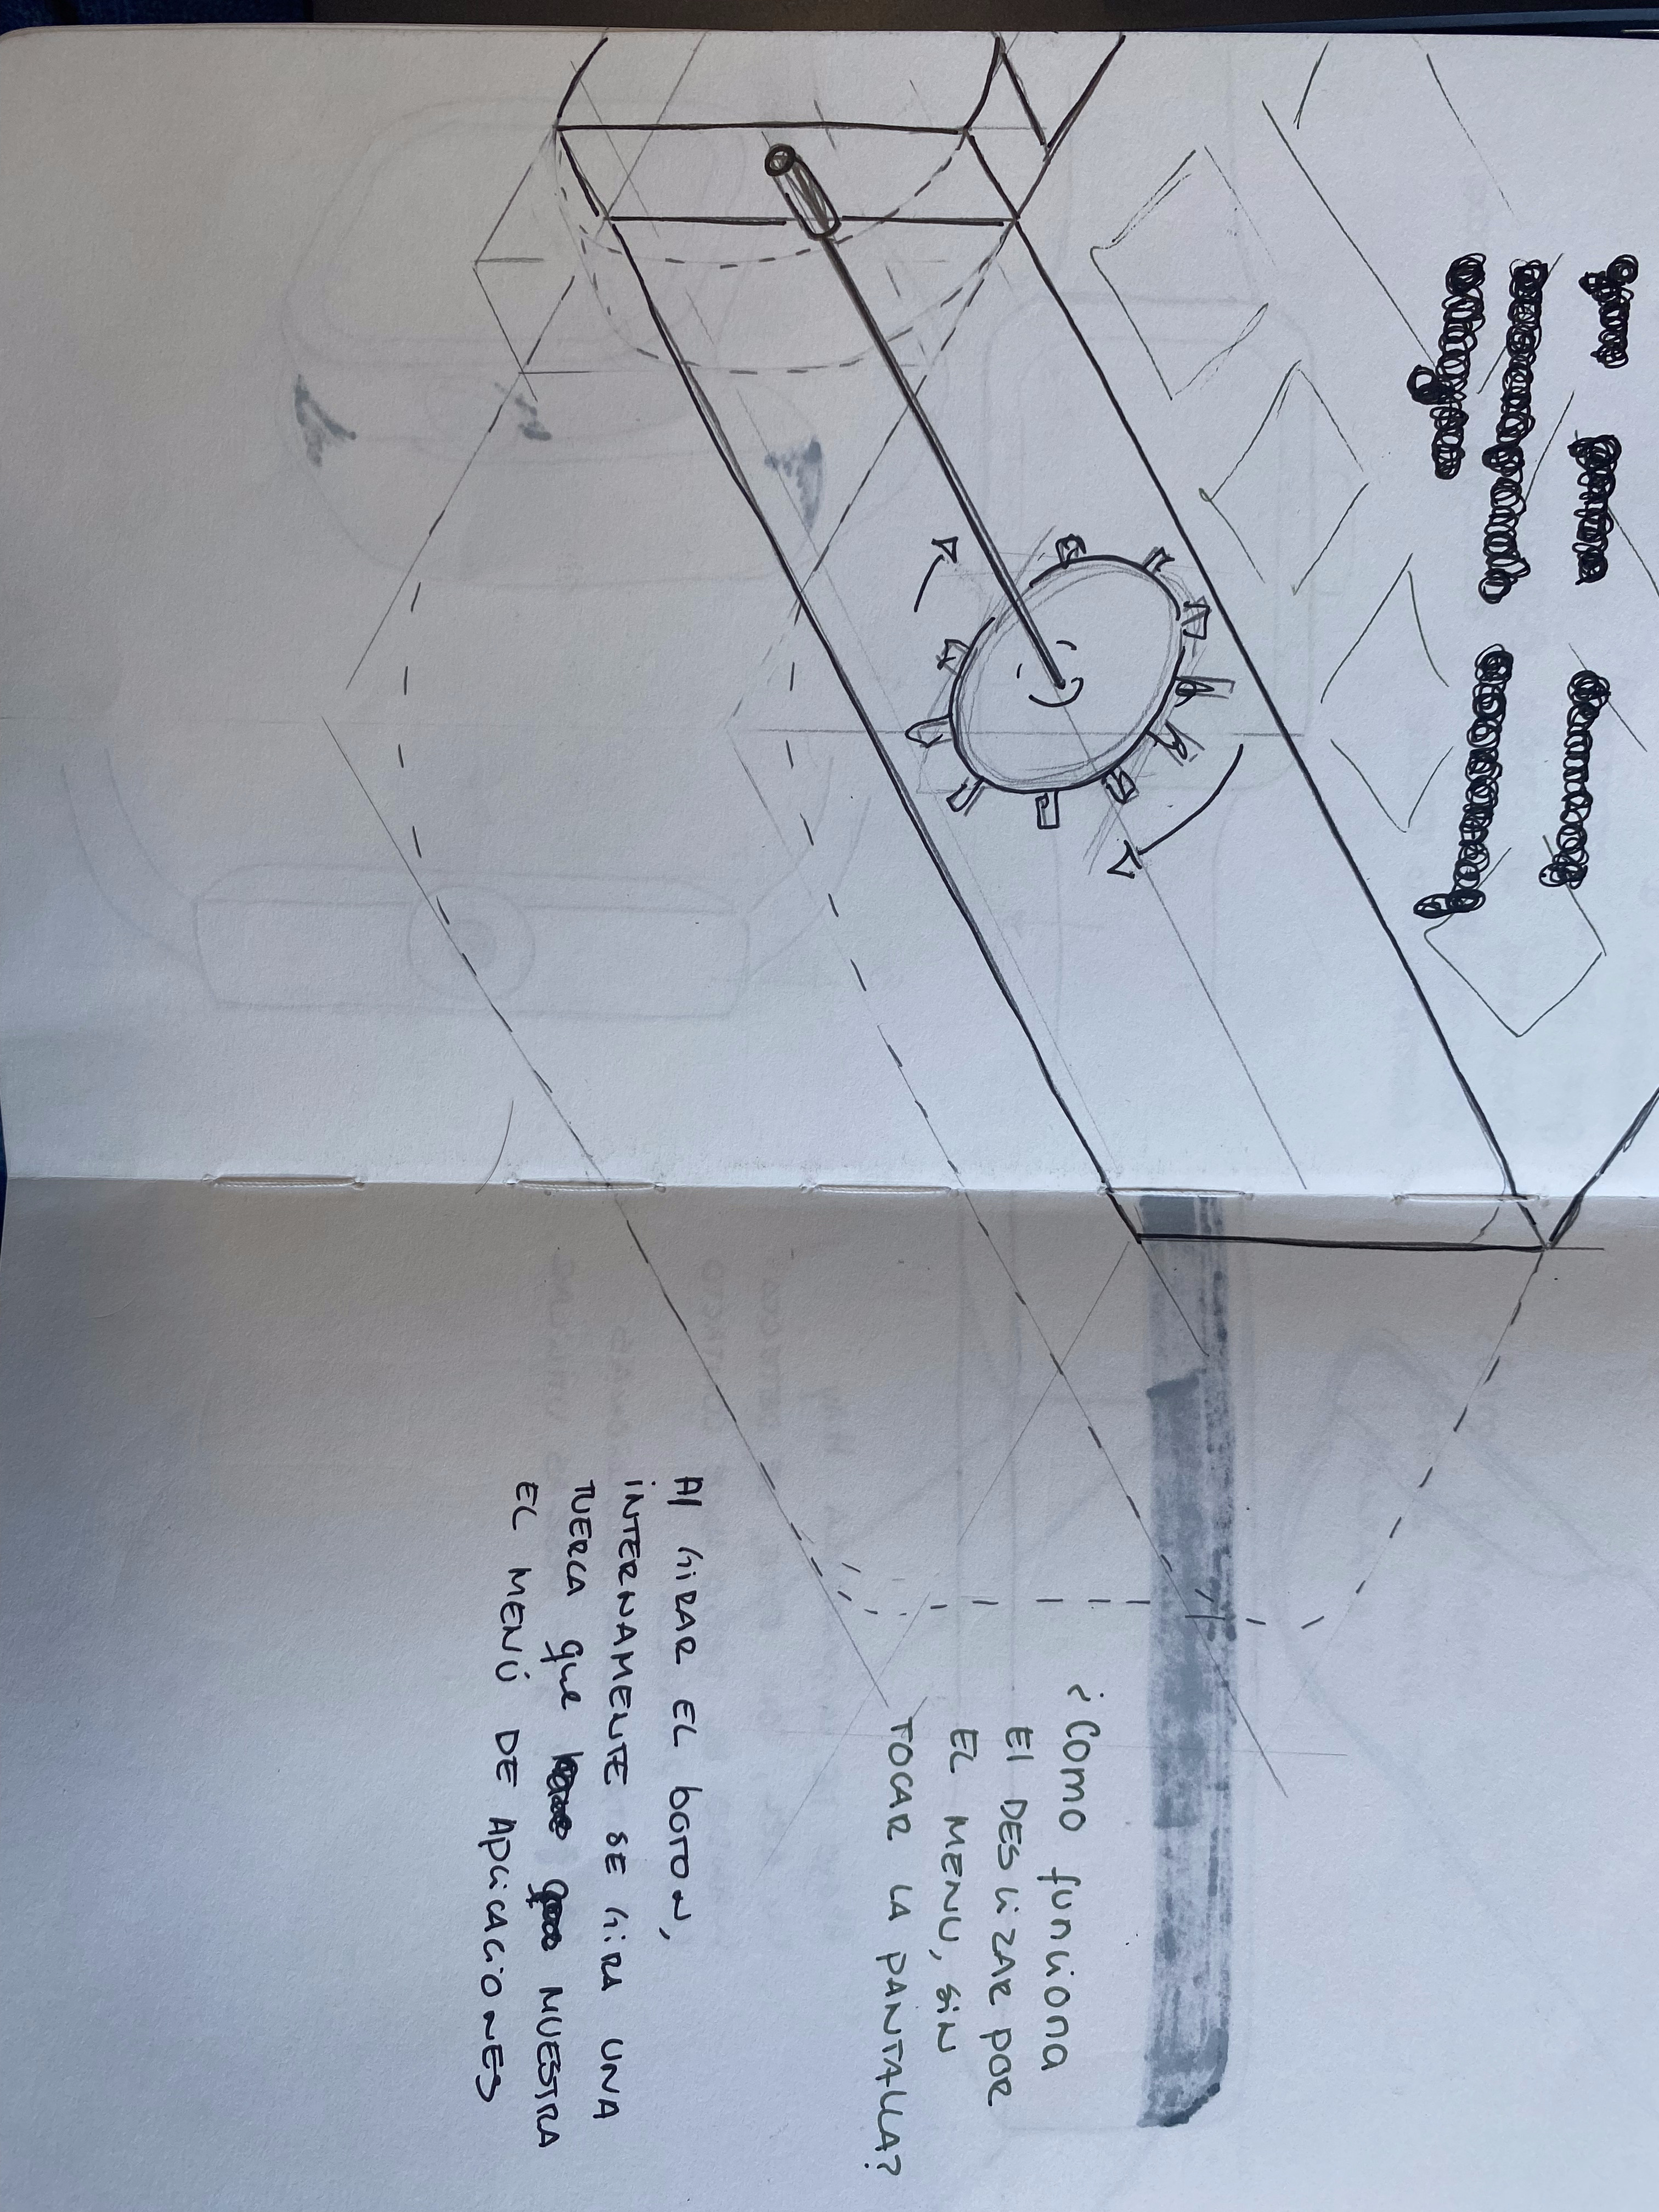 ¿Como funciona
El DESLIZAR POR
EL MENU, SIN
TOCAR LA PANTALLA?
Al GIRAR EL BOTON,
INTERNAMENTE SE GIRA UNA
TUERCA que MUESTRA
EL MENÚ DE APLICACIONES